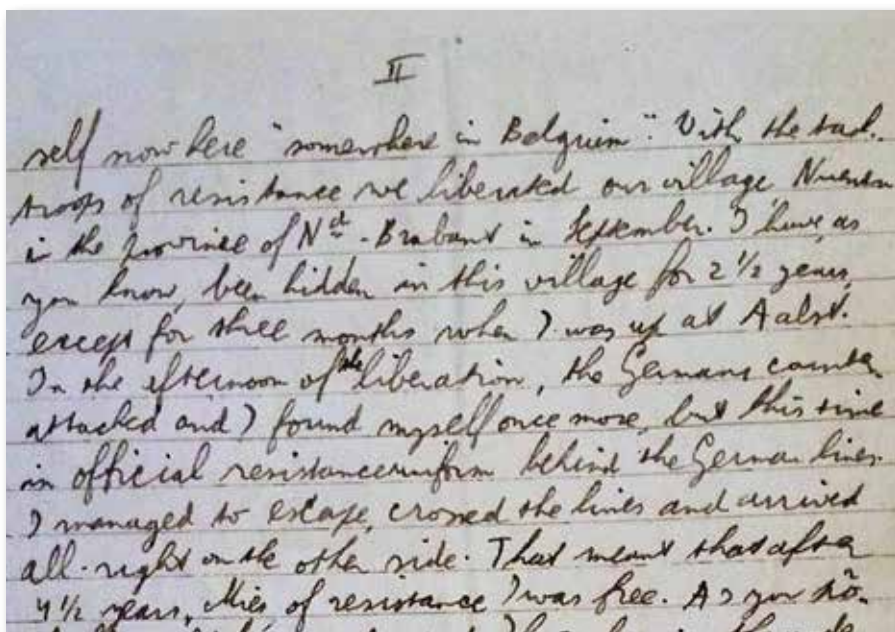 II
self now here "somewhere in Belgium". With the
troops of resistance we liberated our village Nuenen
in the province of Nd-Brabant in September. I have, as
you know, been hidden in this village for 2 ½ years,
except for three months when I was up at Aalst.
In the efternoon of the liberation, the Germans counter
attacked and I found myself once more, but this time
in official resistanceuniform behind the German lines.
I managed to escape, crossed the lines and arrived
all right on the other side. That meant that after
4 ½ years, of resistance I was free. As you